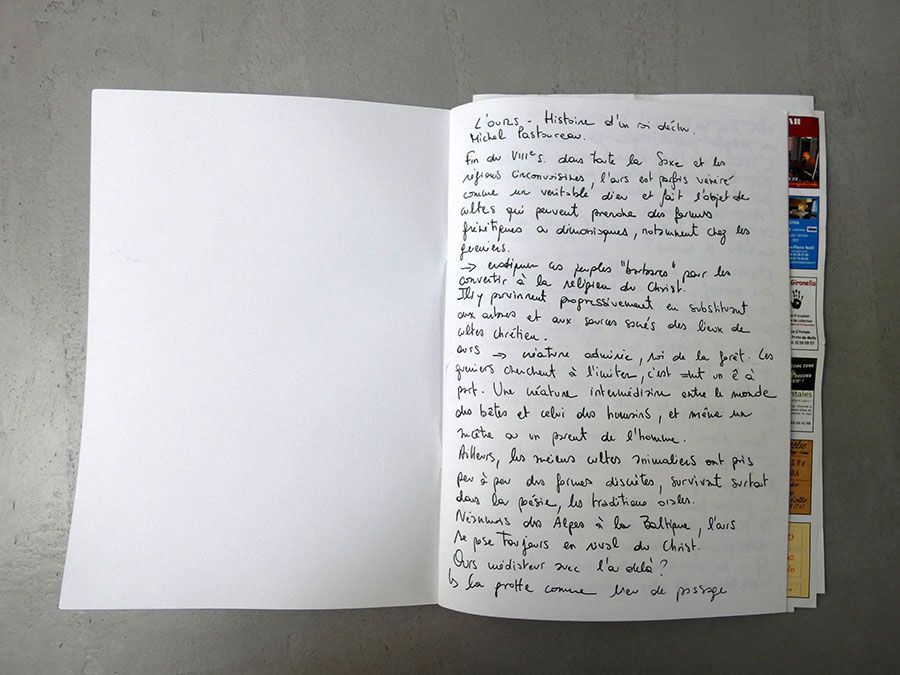 L'OURS - Histoire d'un roi déchu.
Michel Pastoureau.
Fin du VIIIe s. dans toute la Saxe et les
régions circonvoisines, l'ours est parfois vénéré
comme un véritable dieu et fait l'objet de
cultes qui peuvent prendre des formes
frénétiques ou démoniaques, notamment chez les
guerriers.
→ éradiquer ces peuples "barbares" pour les
convertir à la religion du Christ.
Ils y parvinrent progressivement en substituant
aux arbres et aux sources sacrés des lieux de
cultes chrétien.
ours → créature admirée, roi de la forêt. Les
guerriers cherchent à l'imiter, c'est un ê à
part. Une créature intermédiaire entre le monde
des bêtes et celui des humains, et même un
ancêtre ou un parent de l'homme.
Ailleurs, les anciens cultes animaliers ont pris
peu à peu des formes discrètes, survivant surtout
dans la poésie, les traditions orales.
Néanmoins des Alpes à la Baltique, l'ours
se pose toujours en rival du Christ.
Ours médiateur avec l'au delà ?
↳ la grotte comme lieu de passage
AR
Gironella
ntales